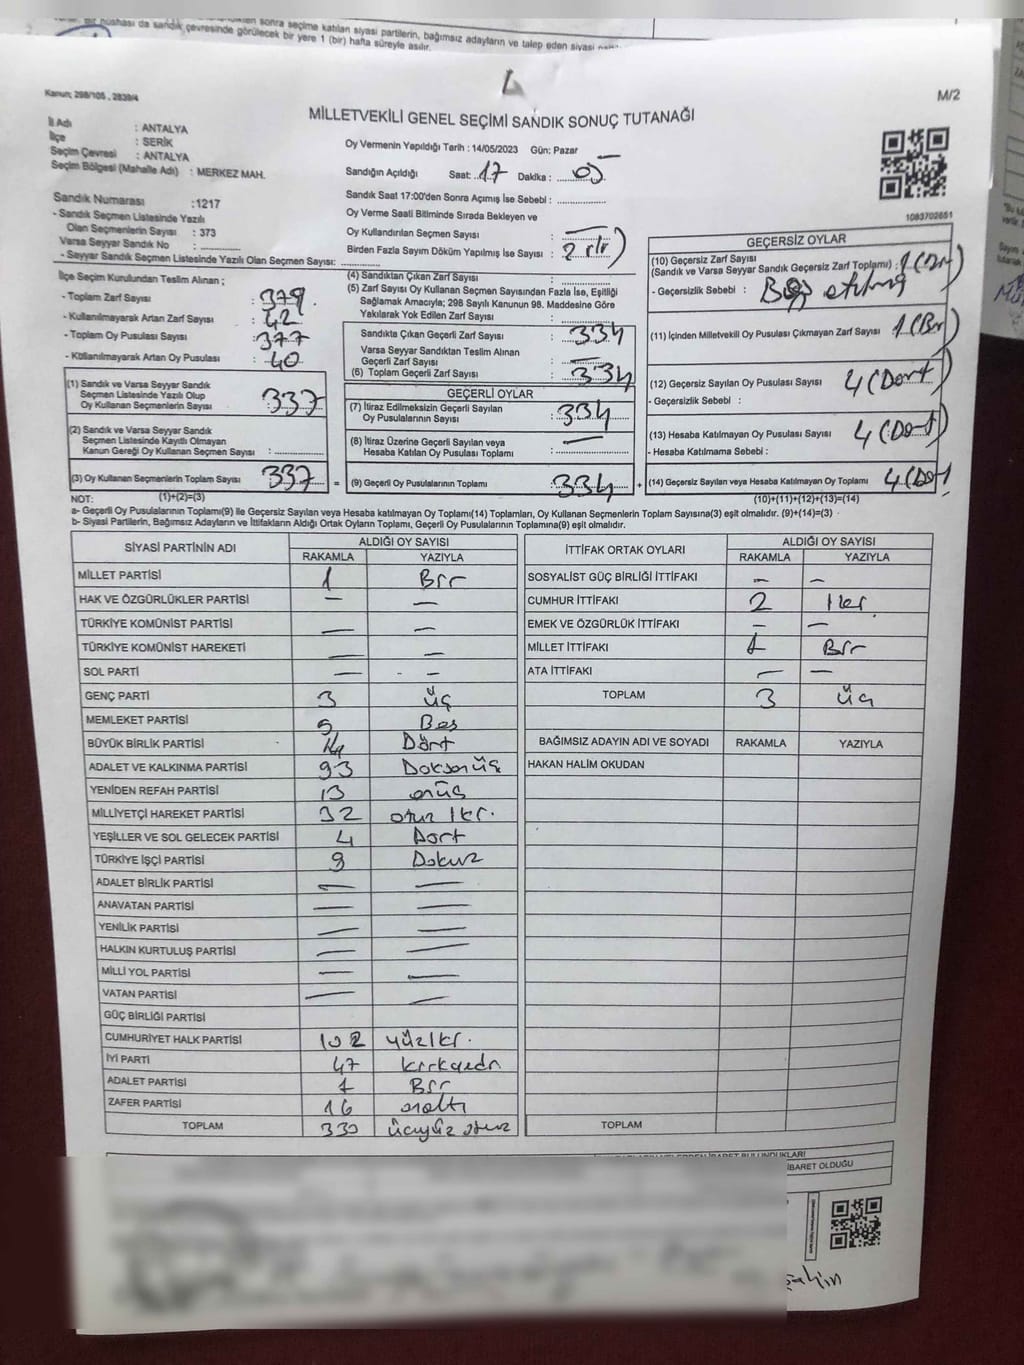 bir nüshası da sandık çevresinde görülecek bir yere 1 (bir) hafta süreyle asılır.
sonra seçime katılan siyasi partilerin, bağımsız adayların ve talep eden siyasi
Kanun; 298/105 , 2839/4
M/2
MİLLETVEKİLİ GENEL SEÇİMİ SANDIK SONUÇ TUTANAĞI
İl Adı : ANTALYA
İlçe : SERİK
Seçim Çevresi : ANTALYA
Seçim Bölgesi (Mahalle Adı) : MERKEZ MAH.
Sandık Numarası :1217
- Sandık Seçmen Listesinde Yazılı
Olan Seçmenlerin Sayısı : 373
Varsa Seyyar Sandık No : ............
- Seyyar Sandık Seçmen Listesinde Yazılı Olan Seçmen Sayısı: ............
Oy Vermenin Yapıldığı Tarih : 14/05/2023 Gün: Pazar
Sandığın Açıldığı Saat: 17 Dakika : 05
Sandık Saat 17:00'den Sonra Açımış İse Sebebi : ............
Oy Verme Saati Bitiminde Sırada Bekleyen ve
Oy Kullandırılan Seçmen Sayısı : —
Birden Fazla Sayım Döküm Yapılmış İse Sayısı :
1083702651
İlçe Seçim Kurulundan Teslim Alınan ;
- Toplam Zarf Sayısı : 379
- Kullanılmayarak Artan Zarf Sayısı : 42
- Toplam Oy Pusulası Sayısı : 377
- Kullanılmayarak Artan Oy Pusulası : 40
(1) Sandık ve Varsa Seyyar Sandık
Seçmen Listesinde Yazılı Olup
Oy Kullanan Seçmenlerin Sayısı : 337
(2) Sandık ve Varsa Seyyar Sandık
Seçmen Listesinde Kayıtlı Olmayan
Kanun Gereği Oy Kullanan Seçmen Sayısı : ............
(3) Oy Kullanan Seçmenlerin Toplam Sayısı : 337 =
(4) Sandıktan Çıkan Zarf Sayısı : ............
(5) Zarf Sayısı Oy Kullanan Seçmen Sayısından Fazla İse, Eşitliği
Sağlamak Amacıyla; 298 Sayılı Kanunun 98. Maddesine Göre
Yakılarak Yok Edilen Zarf Sayısı : ............
Sandıkta Çıkan Geçerli Zarf Sayısı : 334
Varsa Seyyar Sandıktan Teslim Alınan
Geçerli Zarf Sayısı : —
(6) Toplam Geçerli Zarf Sayısı : 334
GEÇERLİ OYLAR
(7) İtiraz Edilmeksizin Geçerli Sayılan
Oy Pusulalarının Sayısı : 334
(8) İtiraz Üzerine Geçerli Sayılan veya
Hesaba Katılan Oy Pusulası Toplamı : —
(9) Geçerli Oy Pusulalarının Toplamı : 334 +
GEÇERSİZ OYLAR
(10) Geçersiz Zarf Sayısı
(Sandık ve Varsa Seyyar Sandık Geçersiz Zarf Toplamı) : 1 (Bir)
- Geçersizlik Sebebi :
(11) İçinden Milletvekili Oy Pusulası Çıkmayan Zarf Sayısı : 1 (Bir)
(12) Geçersiz Sayılan Oy Pusulası Sayısı : 4 (Dört)
- Geçersizlik Sebebi :
(13) Hesaba Katılmayan Oy Pusulası Sayısı : 4 (Dört)
- Hesaba Katılmama Sebebi :
(14) Geçersiz Sayılan veya Hesaba Katılmayan Oy Toplamı 4 (Dört
NOT: (1)+(2)=(3) (10)+(11)+(12)+(13)=(14)
a- Geçerli Oy Pusulalarının Toplamı(9) ile Geçersiz Sayılan veya Hesaba katılmayan Oy Toplamı(14) Toplamları, Oy Kullanan Seçmenlerin Toplam Sayısına(3) eşit olmalıdır. (9)+(14)=(3)
b- Siyasi Partilerin, Bağımsız Adayların ve İttifakların Aldığı Ortak Oyların Toplamı, Geçerli Oy Pusulalarının Toplamına(9) eşit olmalıdır.
SİYASİ PARTİNİN ADI ALDIĞI OY SAYISI
RAKAMLA YAZIYLA
MİLLET PARTİSİ 1 Bir
HAK VE ÖZGÜRLÜKLER PARTİSİ — —
TÜRKİYE KOMÜNİST PARTİSİ — —
TÜRKİYE KOMÜNİST HAREKETİ — —
SOL PARTİ — —
GENÇ PARTİ 3 üç
MEMLEKET PARTİSİ 5 Beş
BÜYÜK BİRLİK PARTİSİ 4 Dört
ADALET VE KALKINMA PARTİSİ 93 Doksanüç
YENİDEN REFAH PARTİSİ 13 onüç
MİLLİYETÇİ HAREKET PARTİSİ 32 otuz iki.
YEŞİLLER VE SOL GELECEK PARTİSİ 4 Dört
TÜRKİYE İŞÇİ PARTİSİ 9 Dokuz
ADALET BİRLİK PARTİSİ — —
ANAVATAN PARTİSİ — —
YENİLİK PARTİSİ — —
HALKIN KURTULUŞ PARTİSİ — —
MİLLİ YOL PARTİSİ — —
VATAN PARTİSİ — —
GÜÇ BİRLİĞİ PARTİSİ
CUMHURİYET HALK PARTİSİ 102 yüziki.
İYİ PARTİ 47 kırkyedi
ADALET PARTİSİ 1 Bir
ZAFER PARTİSİ 16 onaltı
TOPLAM 330 üçyüz otuz
İTTİFAK ORTAK OYLARI ALDIĞI OY SAYISI
RAKAMLA YAZIYLA
SOSYALİST GÜÇ BİRLİĞİ İTTİFAKI — —
CUMHUR İTTİFAKI 2 İki
EMEK VE ÖZGÜRLÜK İTTİFAKI — —
MİLLET İTTİFAKI 1 Bir
ATA İTTİFAKI — —
TOPLAM 3 üç
BAĞIMSIZ ADAYIN ADI VE SOYADI RAKAMLA YAZIYLA
HAKAN HALİM OKUDAN
TOPLAM
İBARET OLDUĞU